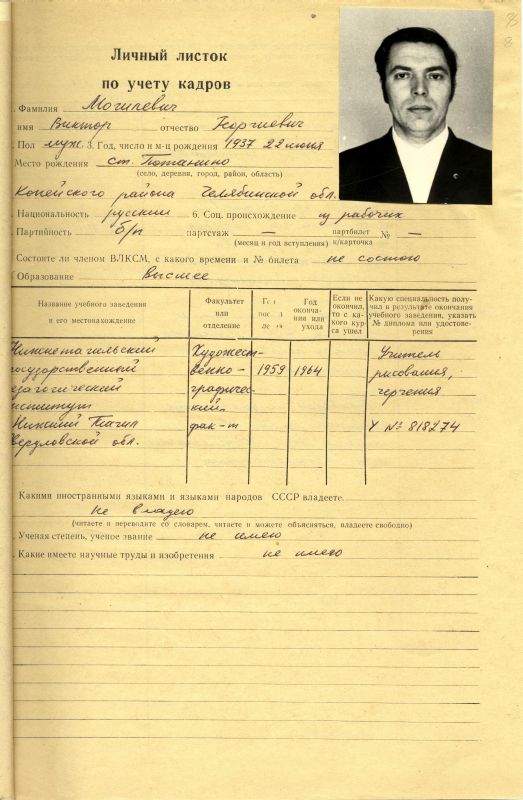 Личный листок
по учету кадров
Фамилия Могилевич
имя Виктор отчество Георгиевич
Пол муж. 3. Год, число и м-ц рождения 1937 22 июня
Место рождения ст. Потанино
(село, деревня, город, район, область)
Копейского района Челябинской обл.
Национальность русский 6. Соц. происхождение из рабочих
Партийность б/п партстаж — партбилет к/карточка № —
(месяц и год вступления)
Состоите ли членом ВЛКСМ, с какого времени и № билета не состою
Образование высшее
Название учебного заведения и его местонахождение
Факультет или отделение
Год окончания или ухода
Если не окончил, то с какого курса ушел
Какую специальность получил в результате окончания учебного заведения, указать № диплома или удостоверения
Нижнетагильский Художест- Учитель
государственный венно- 1959 1964 рисования,
едагогический графичес- черчения
нститут кий
Нижний Тагил фак-т У № 818274
вердловской обл.
Какими иностранными языками и языками народов СССР владеете
не владею
(читаете и переводите со словарем, читаете и можете объясняться, владеете свободно)
Ученая степень, ученое звание не имею
Какие имеете научные труды и изобретения не имею